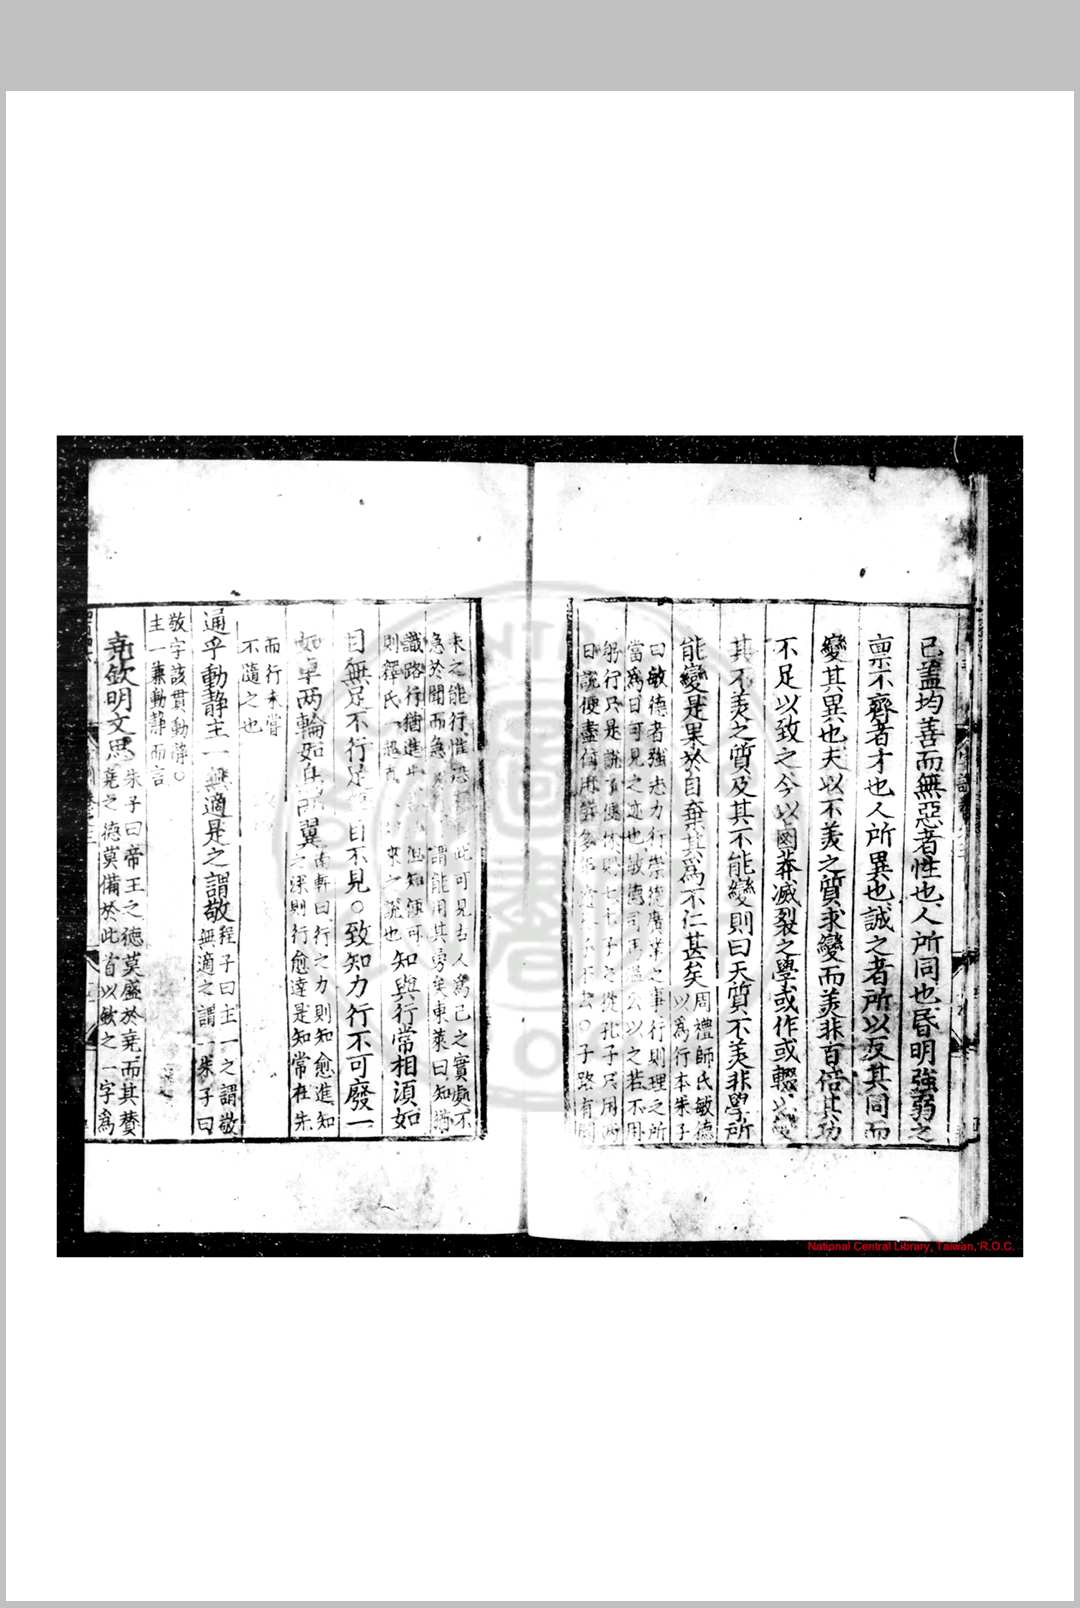 已蓋均善而無惡者性也人所同也昏明強弱之
禀不齊者才也人所異也誠之者所以反其同而
變其異也夫以不美之質求變而美非百倍其功
不足以致之今以鹵莽滅裂之學或作或輟以變
其不美之質及其不能變則曰天質不美非學所
能變是果於自棄其為不仁甚矣
周禮師氏敏德
以為行本朱子
曰敏德者強志力行崇德廣業之事行則理之所
當為日可見之迹也敏德司馬溫公以之若不用
躬行只是說了便休則七十子之從孔子只用兩
日說便盡何用許多年 〇子路有聞
未之能行惟恐 此可見古人為己之實處不
急於聞而急 謂能用其勇矣東萊曰知猶
識路行猶進步 但知便可
則釋氏一超 來之說也
知與行常相須如
目無足不行足無目不見〇致知力行不可廢一
如車两輪如鳥兩翼
南軒曰行之力則知愈進知
之深則行愈達是知常在先
而行未嘗
不隨之也
通乎動静主一無適是之謂敬
程子曰主一之謂敬
無適之謂一朱子曰
敬字該貫動静〇
主一兼動静而言
堯欽明文思
朱子曰帝王之德莫盛於堯而其贊
堯之德莫備於此首以欽之一字為
National Central Library, Taiwan, R.O.C.